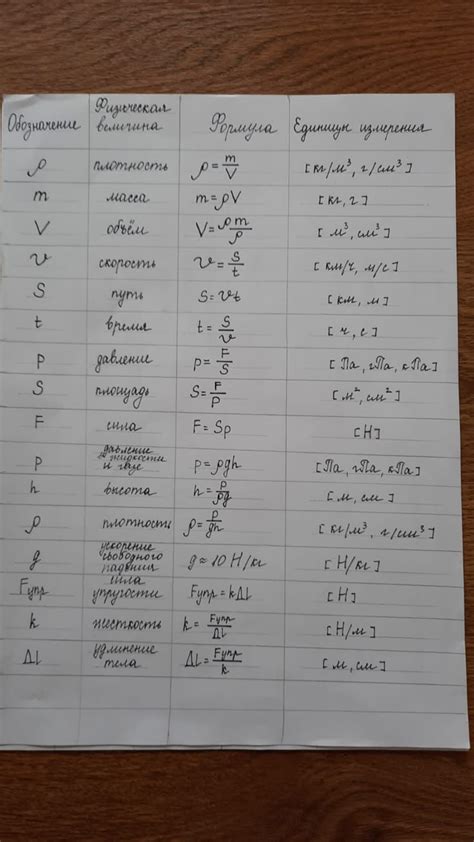 Обозначение Физическая величина Формула Единицы измерения
ρ плотность ρ = m/V [кг/м³, г/см³]
m масса m = ρV [кг, г]
V объём V = ρm/ρ [м³, см³]
v скорость v = S/t [км/ч, м/с]
S путь S = vt [км, м]
t время t = S/v [ч, с]
p давление p = F/S [Па, гПа, кПа]
S площадь S = F/P [м², см²]
F сила F = Sp [Н]
p давление в жидкости и газе p = ρgh [Па, гПа, кПа]
h высота h = p/ρg [м, см]
ρ плотность ρ = p/gh [кг/м³, г/см³]
g ускорение свободного падения g ≈ 10 Н/кг [Н/кг]
Fупр сила упругости Fупр = kΔl [Н]
k жесткость k = Fупр/Δl [Н/м]
Δl удлинение тела Δl = Fупр/k [м, см]